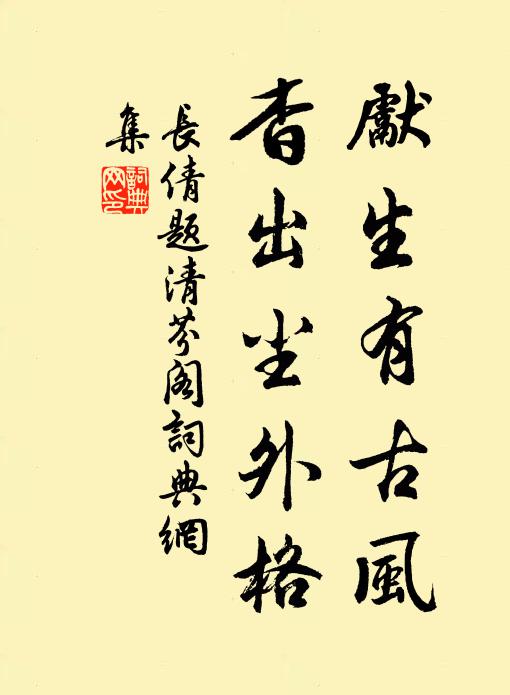 獻生有古風
杳出尘外格
長倩題清芬阁詞典網
集
詞典網印